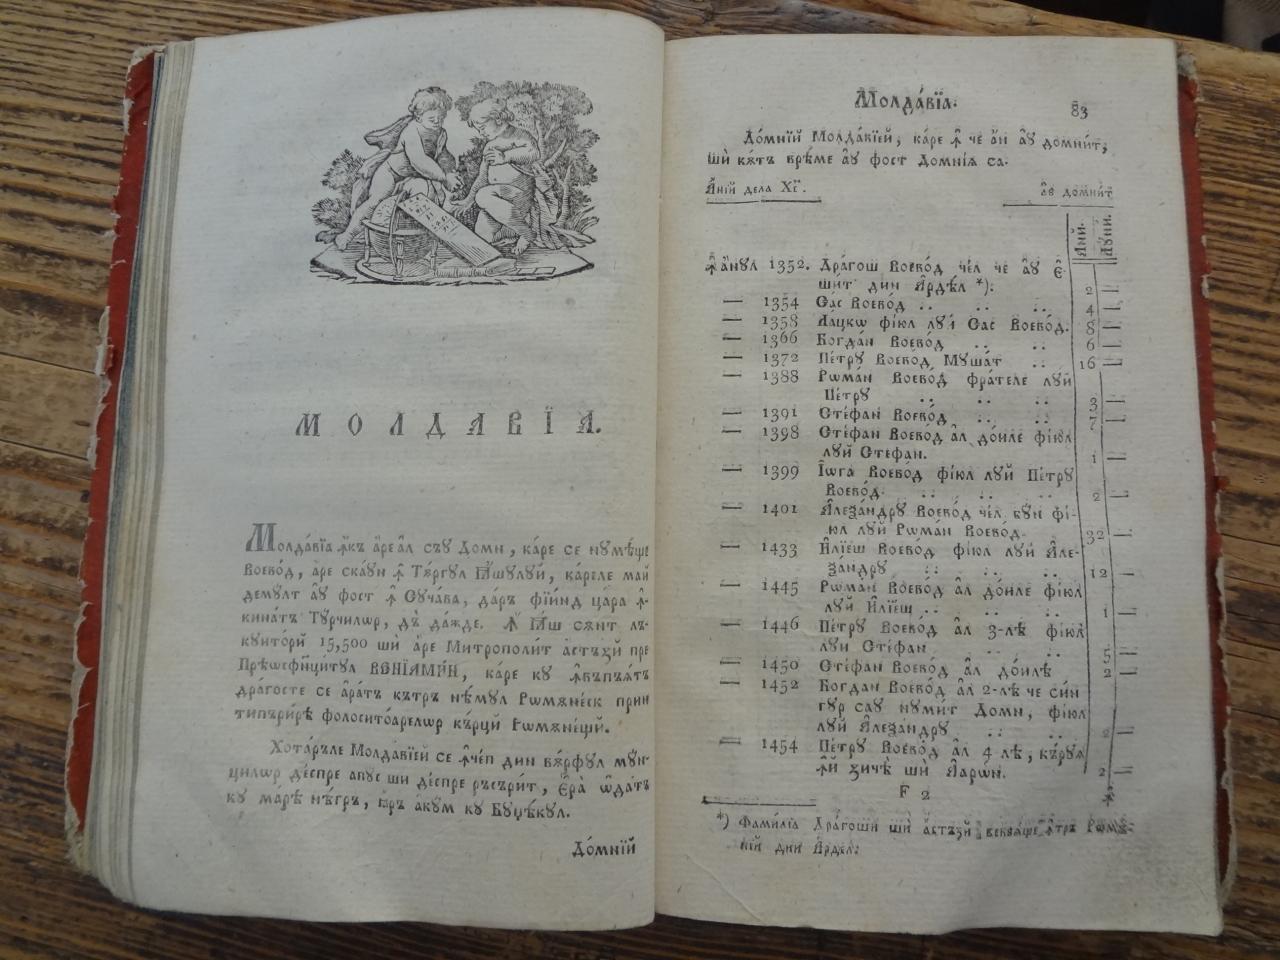 МОЛДАВЇА.
Молда́вїа ꙟ҆кѫ а҆ре а҆л съу Домн, ка́ре се нумѣ́ще
Воево́д, а҆ре скаун ꙟ҆ Тѫ́ргул І҆А҆шулуй, ка́реле май
демулт а҆у фост ꙟ҆ Суча́ва, да́ръ фїи́нд ца́ра ꙟ҆-
кина́тъ Ту́рчилѡр, дъ да́жде. Ꙟ҆ І҆А҆ш сѫнт лъ-
куито́рй 15,500 шѝ а҆ре Митрополи́т а҆стъзй пре
Прѣѡсфи҃ци́тул ВЕНЇАМИ́Н, ка́ре ку ꙟ҆въпъѧ́тъ
дра́госте се а҆ра́тъ кътръ нѣ́мул Рѡмѫне́ск прин
типъри́рѣ фолосито́арелѡр къ́рцй Рѡмѫне́щй.
Хота́ръле Молда́вїей се ꙟ҆че́п дин вѫ́рфул му́н-
цилѡр де́спре апус ши де́спре ръсъри́т, Є҆ра̀ ѡ҆да́тъ
ку ма́рѣ нѣ́гръ, ꙗ҆ръ аку́м ку Буџе́кул.
До́мнїй
Молда́вїа.
83
До́мнїй Молда́вїей, ка́ре ꙟ҆ че а҆н а҆у домни́т,
шѝ кѫтъ врѣ́ме а҆у фост Домнїѧ са.
А҆нїй дела Хс҃.
а҆в домни́т
А҆нй.
Лу́ни.
Ꙟ҆ а҆нул 1352. Дра́гош Воево́д че́л че а҆у є҆-
шит дин А҆рдѣ́л *): 2 —
— 1354 Сас Воево́д .. .. .. 4 —
— 1358 Ла́цкѡ фїю́л луй Сас Воево́д. 8 —
— 1366 Богда́н Воево́д .. .. 6 —
— 1372 Пе́тру Воево́д Муша́т .. .. 16 —
— 1388 Рѡма́н Воево́д фра́теле луй
Пе́тру .. .. .. 3 —
— 1391 Сте́фан Воево́д .. .. 7 —
— 1398 Сте́фан Воево́д а҆л до́иле фїю́л
луй Сте́фан. 1 —
— 1399 І҆ѡга Воево́д фїю́л луй Пе́тру
Воево́д. .. .. .. 2 —
— 1401 А҆леѯа́ндру Воево́д че́л бун фї-
ю́л луй Рѡма́н Воево́д. 32 —
— 1433 И҆лїе́ш Воево́д фїю́л луй А҆ле-
ѯа́ндру .. .. .. 12 —
— 1445 Рѡма́н Воево́д а҆л до́иле фїю́л
луй И҆лїе́ш .. .. .. 1 —
— 1446 Пе́тру Воево́д а҆л 3-лѣ фїю́л
луи Сте́фан .. .. 5 —
— 1450 Сте́фан Воево́д а҆л до́илѣ 2 —
— 1452 Богдан Воево́д а҆л 2-лѣ че си́н
гур сау нумит Домн, фїю́л
луй А҆леѯа́ндру .. .. 2 —
— 1454 Пе́тру Воево́д а҆л 4 лѣ, къ́руѧ
ꙟ҆й зи́чѣ шѝ А҆арѡ́н. 2 —
F 2
*) Фами́лїа Дра́гоши шѝ а҆стъзй ꙟ҆тръ Рѡмѫ́-
нїй дин А҆рдел.